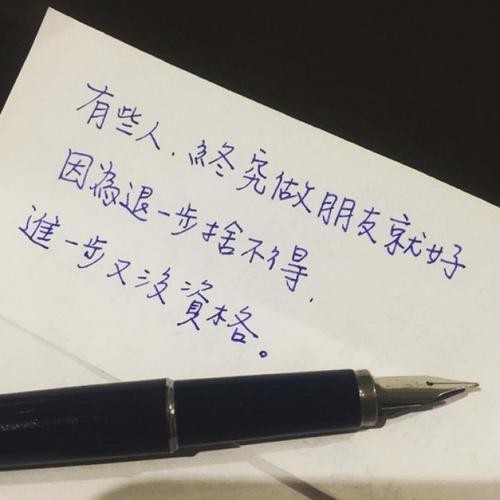 有些人，終究做朋友就好
因為退一步捨不得，
進一步又沒資格。